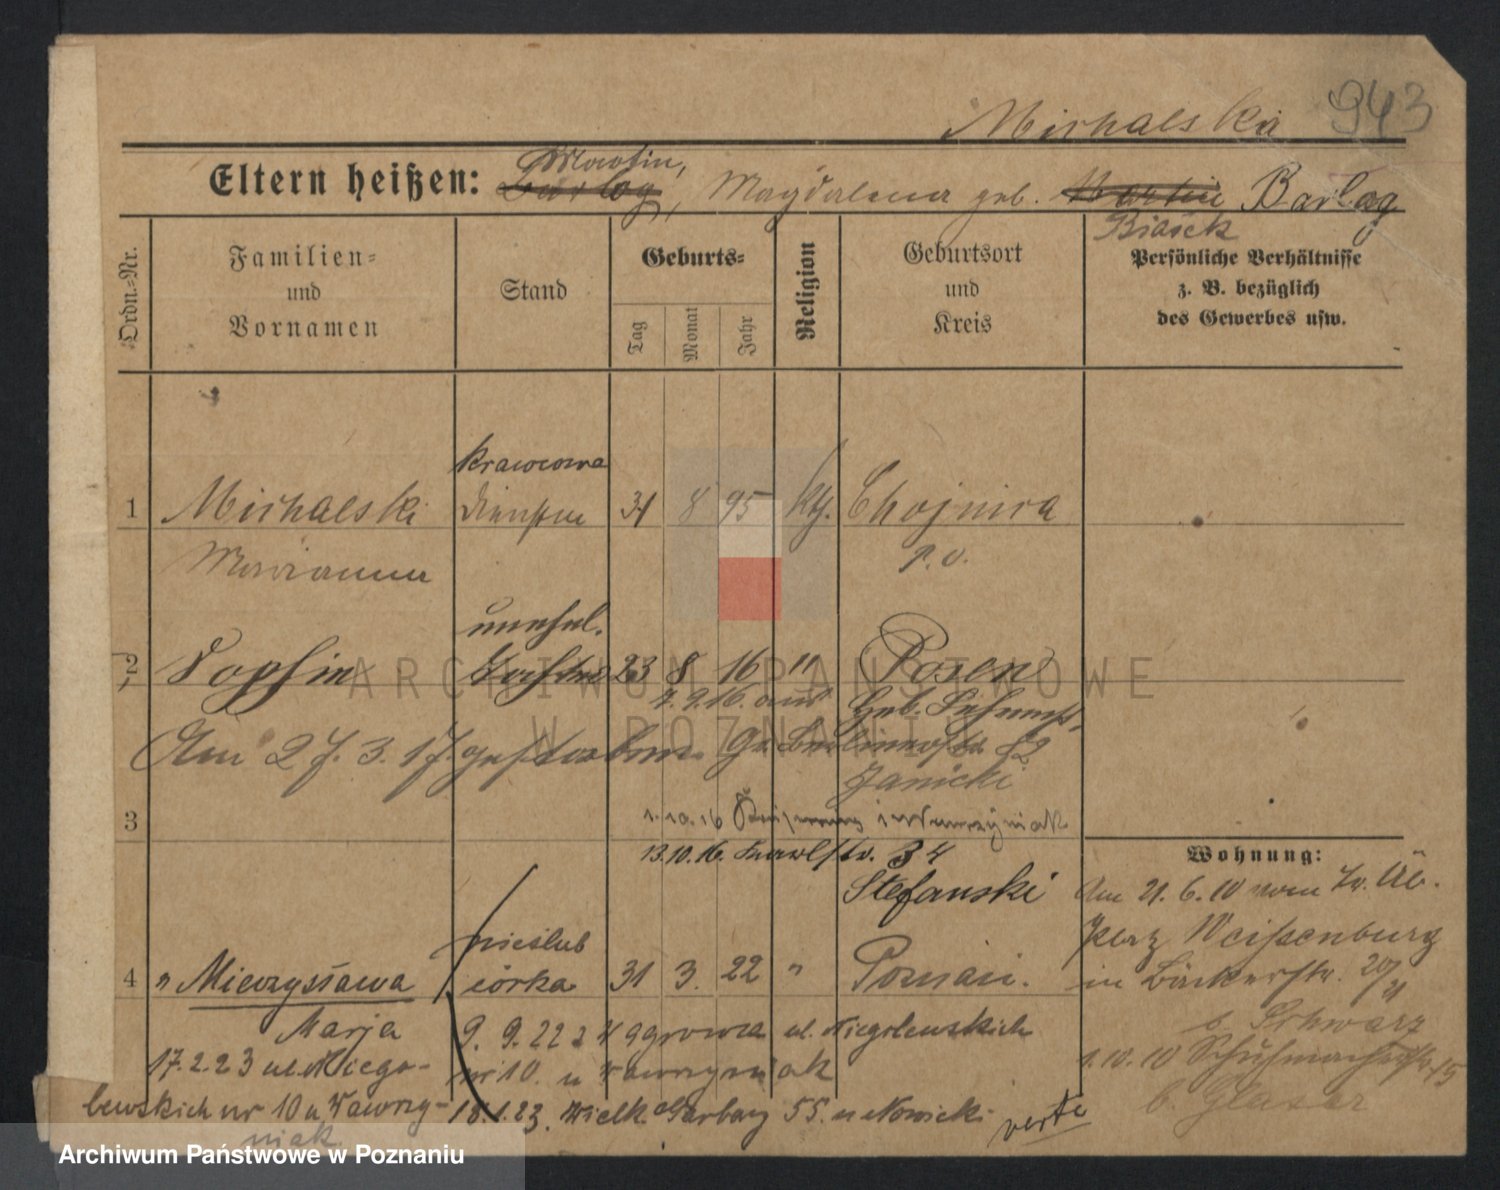 Michalska 943
Eltern heißen: Martin, Magdalena geb. Barlog
Biasek
Ordn.-Nr.
Familien- und Vornamen
Stand
Geburts-
Tag Monat Jahr
Religion
Geburtsort und Kreis
Persönliche Verhältnisse
z. B. bezüglich
des Gewerbes usw.
krawcowa
1 Michalski 31 8 95 kth. Chojnica
Marianna P. O.
unehel.
2 Sophie Tochter 23 8 16 " Posen
7. 9. 16. aus Geb.
Am 27. 3. 17 gestorben. Gr. Berlinerstr 82
Janicki
3 1. 10. 16 i Wawrzyniak
13. 10. 16. Karlstr. 34
Stefanski
Wohnung:
Am 21. 6. 10 vom
Kerz Weissenburg
in Bäckerstr. 20/21
b. Schwarz
1. 10. 10 Schuhmacherstr. 15
b. Glaser
nieślub
4 " Mieczysława córka 31 3. 22 " Poznań.
Marja
9. 9. 22 z Żegrowca ul. Niegolewskich
nr 10. u Wawrzyniak
17. 2. 23 ul. Niego-
lewskich nr 10 u Wawrzy-
niak
18. 1. 23. Wielk. Garbary 55. u Nowick.
verte
ARCHIWUM PAŃSTWOWE
W POZNANIU
Archiwum Państwowe w Poznaniu